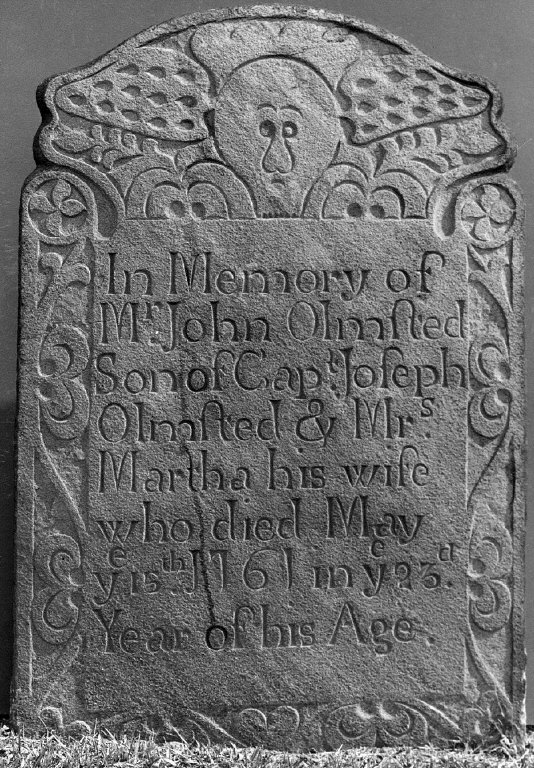 In Memory of
Mr. John Olmſted
Son of Capt. Joſeph
Olmſted & Mrs.
Martha his wife
who died May
ye 15th. 1761 in ye 23d.
Year of his Age.